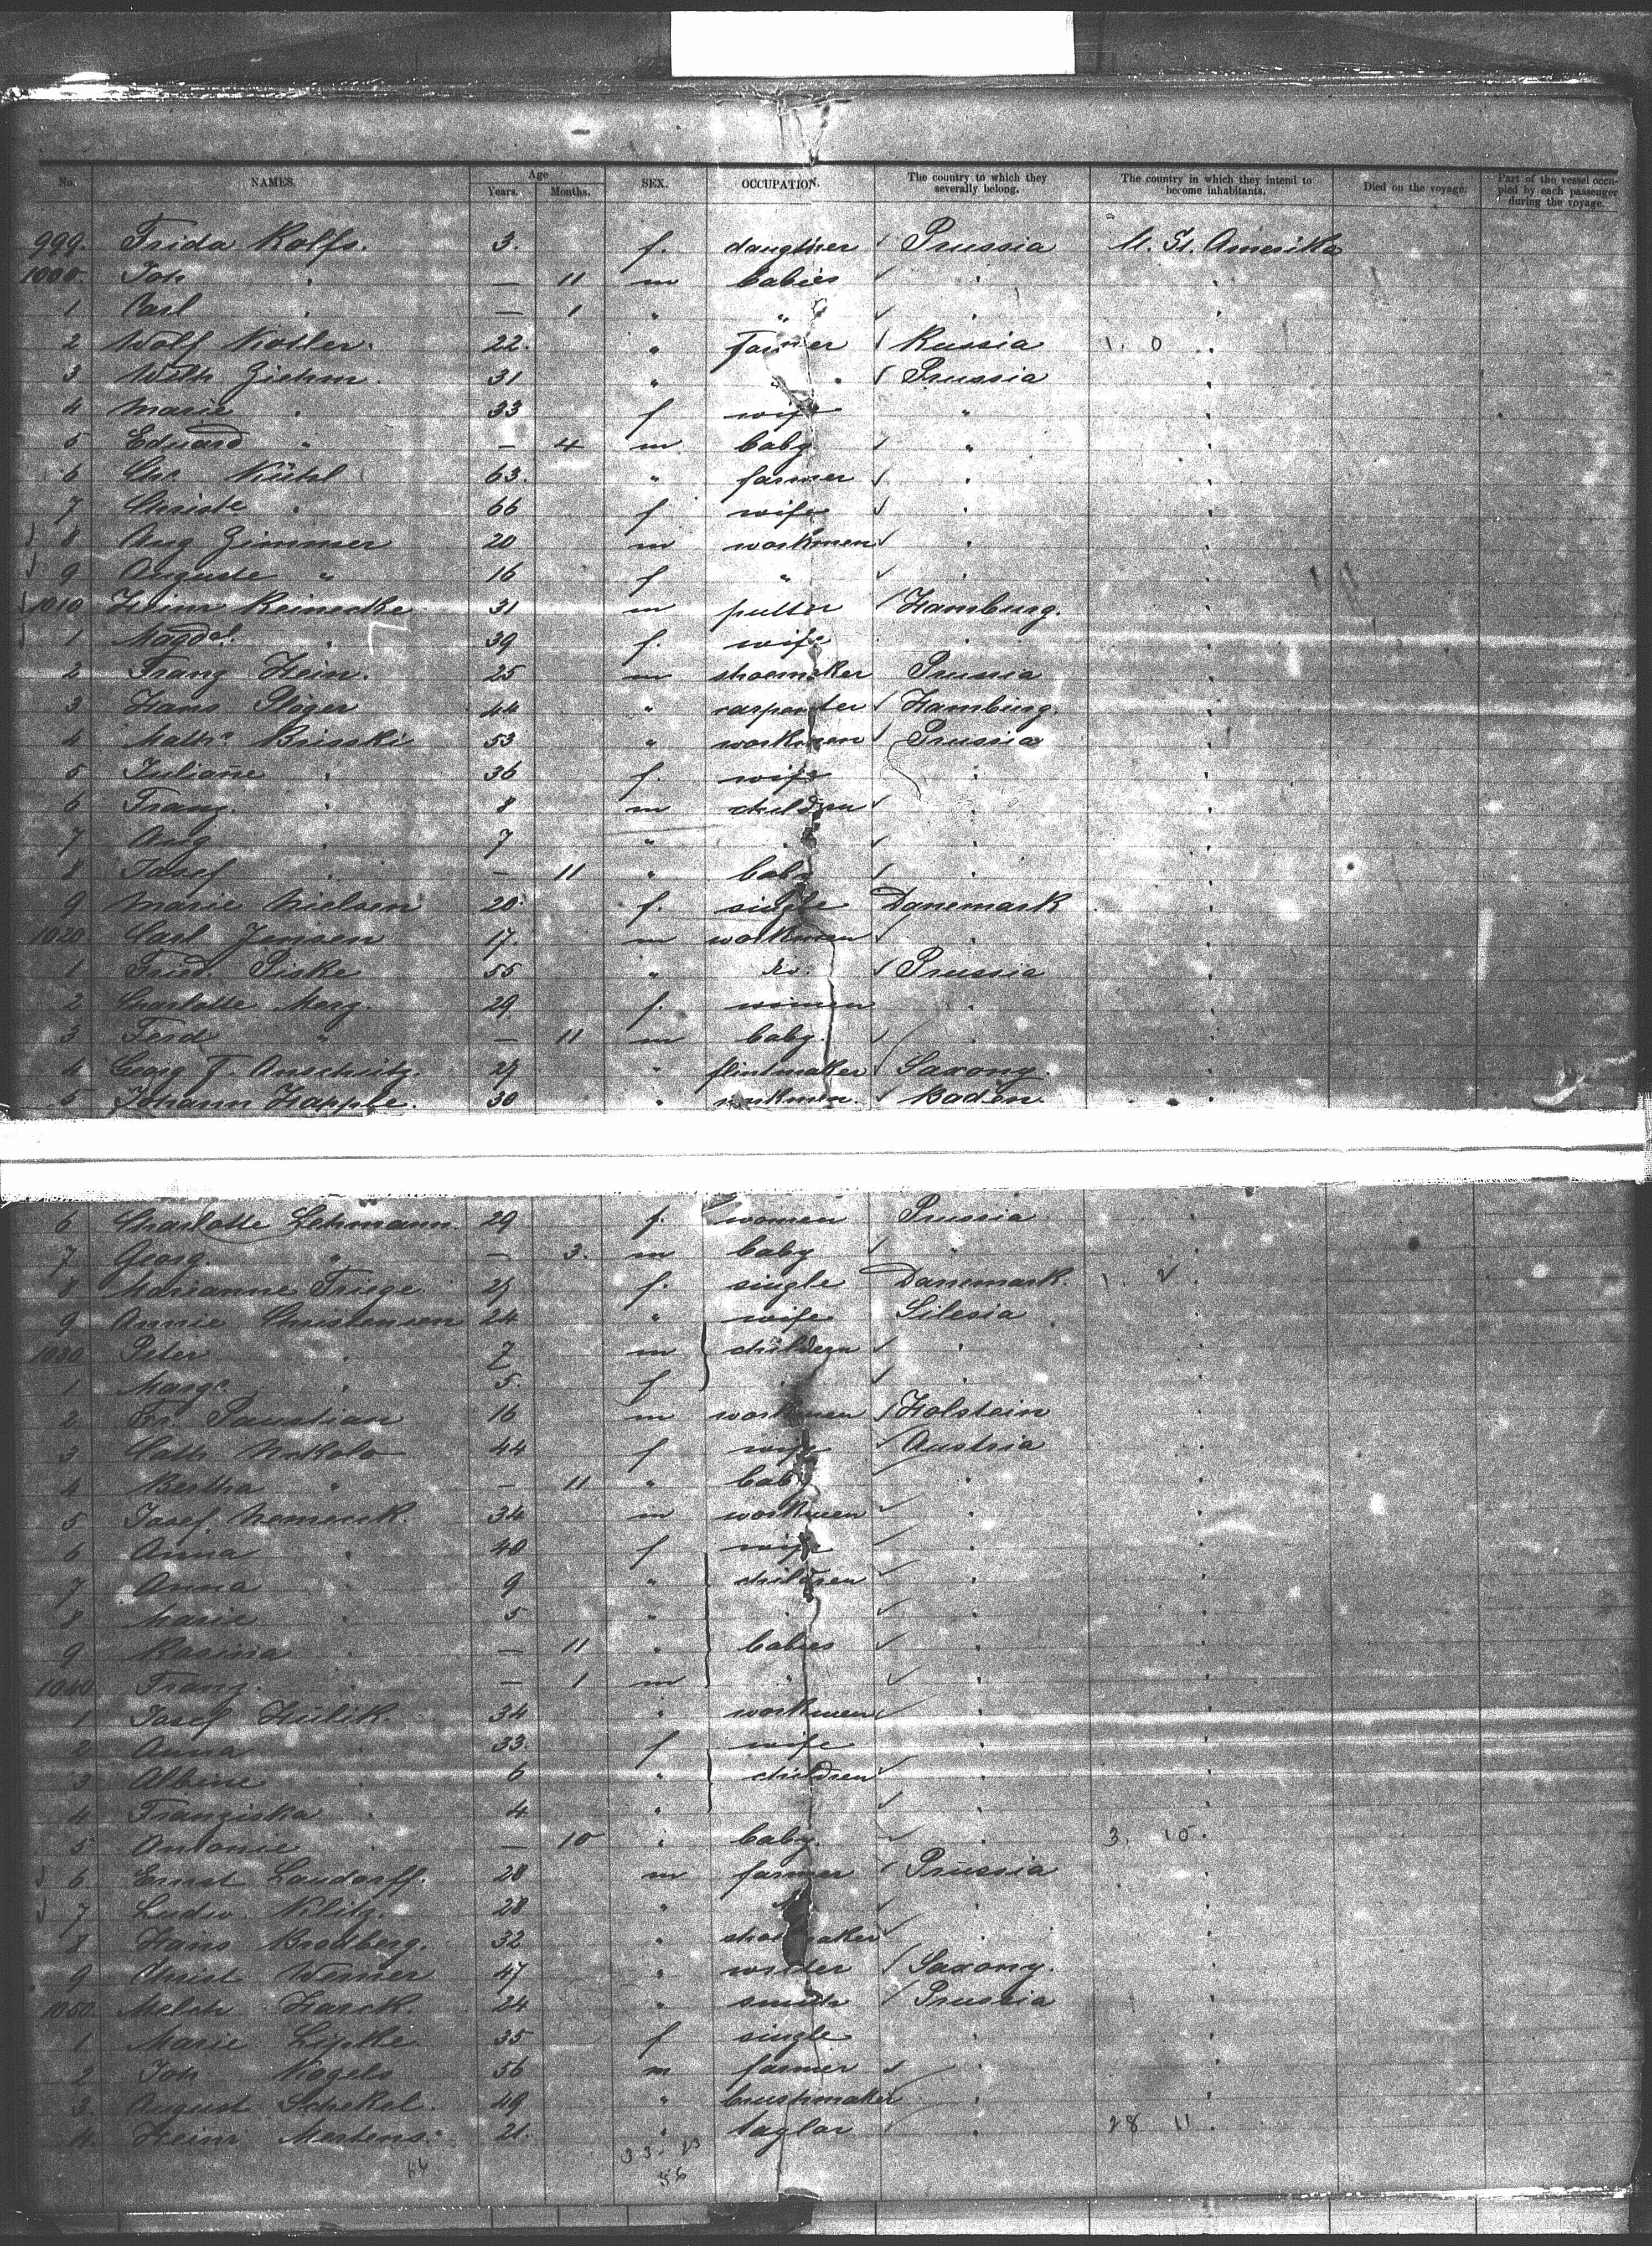 No. NAMES. Age Years. Months. SEX. OCCUPATION. The country to which they severally belong. The country in which they intend to become inhabitants. Died on the voyage. Part of the vessel occupied by each passenger during the voyage.
999. Frida Rolfs. 3. f. daughter Prussia U. St. Amerika
1000. Joh " — 11 m babies "
1 Carl " — 1 " " "
2 Wolf Kotler. 22. " farmer Russia 1. 0
3 Wilh Ziehm. 31 " " Prussia
4 Marie " 33 f wife "
5 Eduard " — 4 m baby "
6 Chr. Kühl 63. " farmer "
7 Christe " 66 f wife "
8 Aug Zimmer 20 m workmen "
9 Auguste " 16 f " "
1010 Heinr Reinecke 31 m Hamburg.
1 Magdal. " 39 f. wife "
2 Franz Hein. 25 m shoemaker Prussia
3 Hans Plöger 44 " carpenter Hamburg.
4 Maths Briski 53 " workmen Prussia
5 Juliane " 36 f. wife "
6 Franz. " 8 m children "
7 Aug " 7 " " "
8 Josef " — 11 " baby "
9 Marie Nielsen 20. f. single Danemark
1020 Carl Jensen 17. m workmen "
1 Fried. Piske 55 " do. Prussia
2 Charlotte Merz. 29 f. women "
3 Ferd " — 11 m baby. "
4 Georg F. Anschütz. 27 " flintmaker Saxony.
5 Johann Happle. 30 " workmen. Baden.
6 Charlotte Lehmann. 29 f. women Prussia
7 Georg. " — 3. m baby "
8 Marianne Friege 27 f. single Danemark. 1. 2
9 Annie Christensen 24 " wife Silesia
1030 Peter " 7 m children "
1 Margr. " 5. f " "
2 Fr. Paustian 16 m workmen Holstein
3 Cath Nikolo 44 f wife Austria
4 Bertha " — 11 " baby "
5 Josef Nemecek. 34 m workmen "
6 Anna " 40 f wife "
7 Anna " 9 " children "
8 Marie " 5 " " "
9 Rosina " — 11 " babies "
1040 Franz. " — 1 m " "
1 Josef Hulik. 34 " workmen "
2 Anna " 33. f wife "
3 Albine " 6 " children "
4 Franziska " 4 " "
5 Antonie " — 10 " baby. " 3. 10.
6 Ernst Landorff. 28 m farmer Prussia
7 Ludw. Kilitz. 28 " "
8 Hans Brodberg. 32 " shoemaker "
9 Christ Werner 47 " Saxony.
1050 Melch Harck. 24 " smith Prussia
1 Marie Liptke 35 f single "
2 Joh Kogels 56 m farmer "
3 August Schekal. 49 " brushmaker "
4. Heinr Mertens. 21. " taylor " 28 11
66 33. 23
56